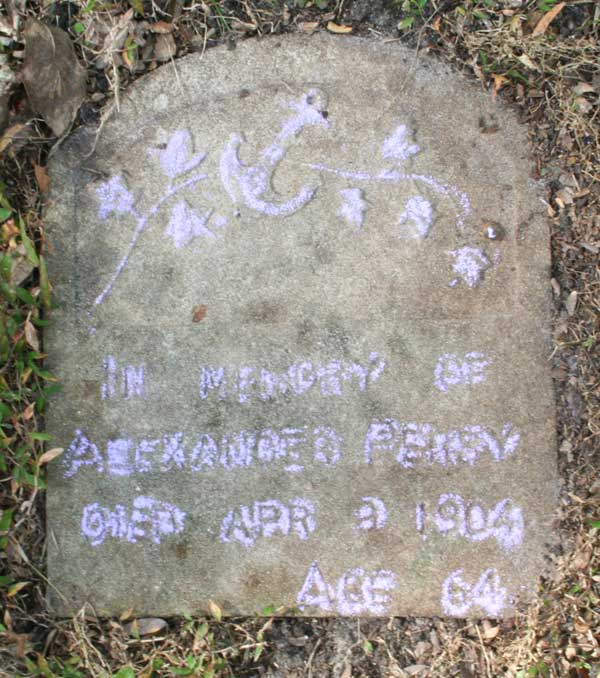 IN MEMORY OF
ALEXANDER PERRY
DIED APR 9 1904
AGE 64